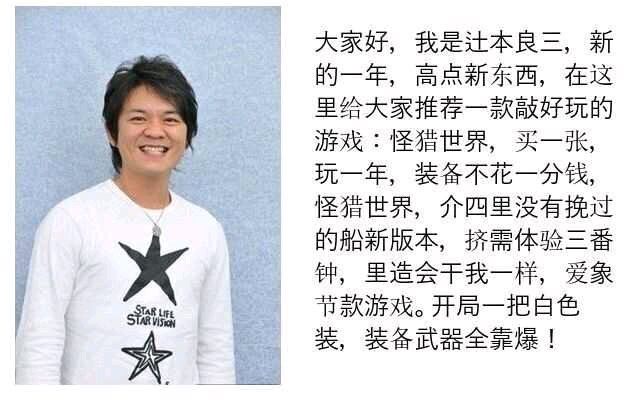 大家好，我是辻本良三，新
的一年，高点新东西，在这
里给大家推荐一款敲好玩的
游戏：怪猎世界，买一张，
玩一年，装备不花一分钱，
怪猎世界，介四里没有挽过
的船新版本，挤需体验三番
钟，里造会干我一样，爱象
节款游戏。开局一把白色
装，装备武器全靠爆！
STAR LIFE
STAR VISION